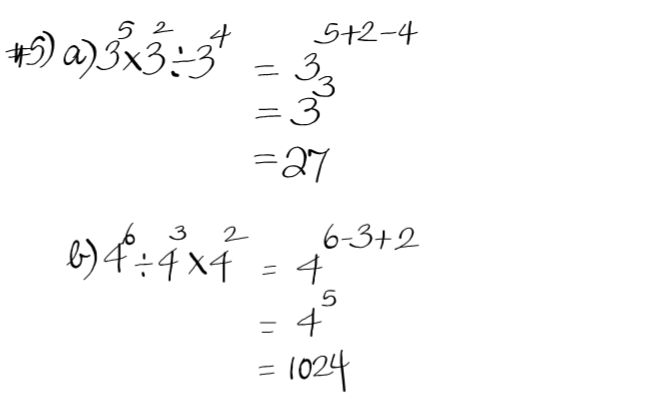 #5) a) 3⁵ × 3² ÷ 3⁴ = 3⁵⁺²⁻⁴
= 3³
= 27
b) 4⁶ ÷ 4³ × 4² = 4⁶⁻³⁺²
= 4⁵
= 1024